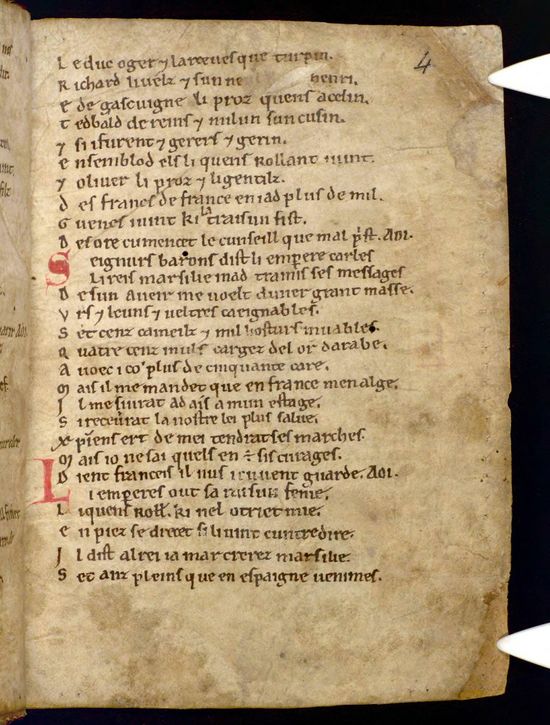 4
L e duc oger ⁊ larceuesque turpin.
R ichard li uelz ⁊ sun ne henri.
E de gascuigne li proz quens acelin.
T edbald de reins ⁊ milun sun cusin.
⁊ si ifurent ⁊ gerers ⁊ gerin.
E nsemblod els li quens Rollant iuint.
⁊ oliuer li proz ⁊ li gentilz.
D es francs de france en iad plus de mil.
G uenes iuint ki la traisun fist.
D es ore cumencet le cunseill que mal prist. Aoi.
S eignurs barons dist li emperere carles
Li reis marsilie mad tramis ses messages
D e sun aueir me uoelt duner grant masse.
V rs ⁊ leuns ⁊ ueltres caeignables.
S et cenz cameilz ⁊ mil hosturs muables.
Q uatre cenz muls cargez del or darabe.
A uoec ico plus de cinquante care.
M ais il me mandet que en france men alge.
I l me siurat ad ais a mun estage.
S i receurat la nostre lei plus salue.
Xpiens ert de mei tendrat ses marches.
M ais io ne sai quels en ÷ sis curages.
D ient franceis il nus cuuent guarde. Aoi.
L i emperes out sa raisun fenie.
L i quens Roll. ki nel otriet mie.
E n piez se drecet si li uint cuntredire.
I l dist al rei ia mar crerez marsilie.
S et anz pleins que en espaigne uenimes.